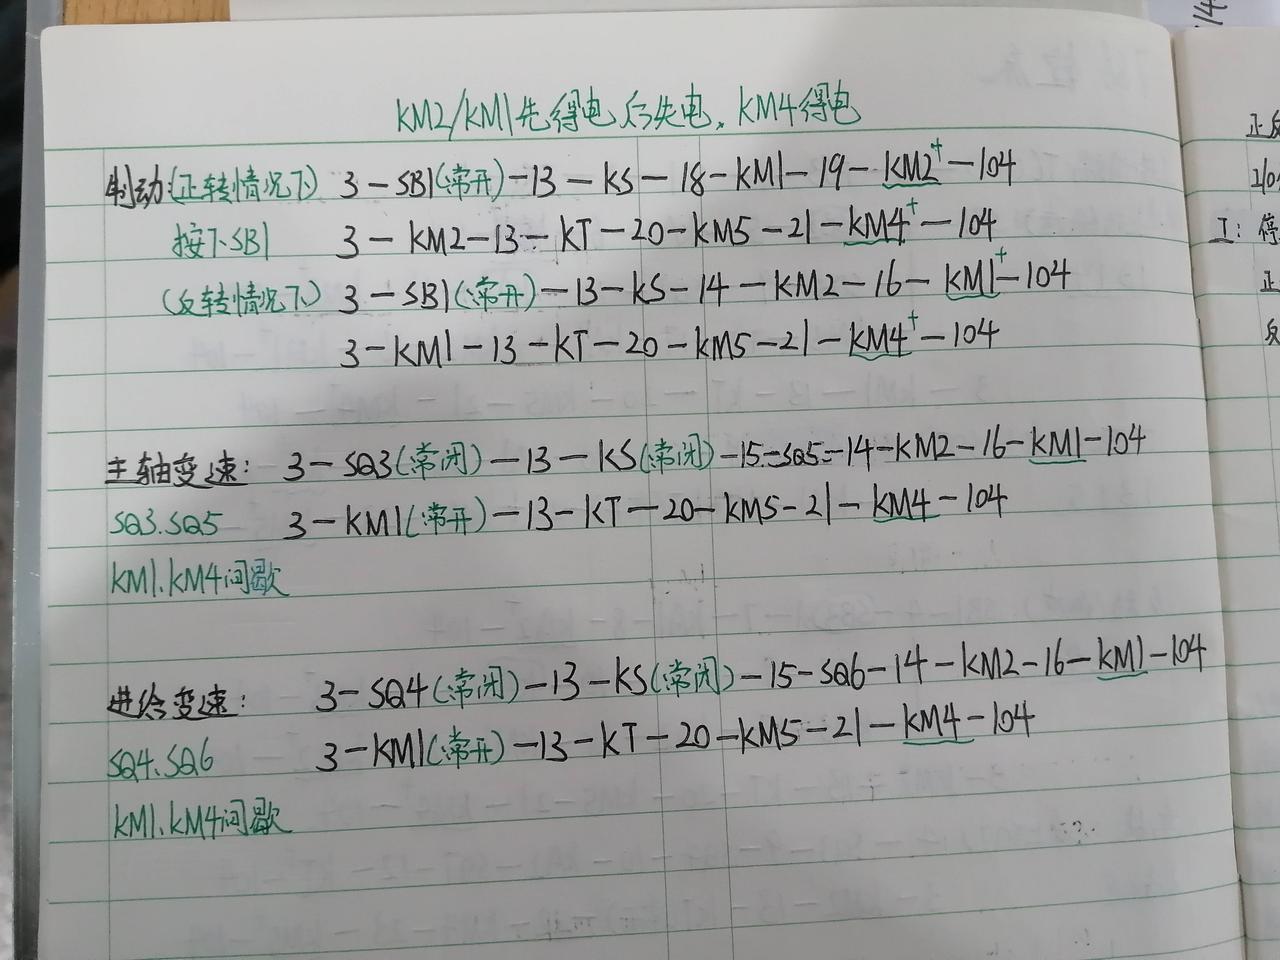 KM2/KM1先得电后失电，KM4得电
制动:(正转情况下) 3-SB1(常开)-13-KS-18-KM1-19-KM2+-104
按下SB1 3-KM2-13-KT-20-KM5-21-KM4+-104
(反转情况下) 3-SB1(常开)-13-KS-14-KM2-16-KM1+-104
3-KM1-13-KT-20-KM5-21-KM4+-104
主轴变速: 3-SQ3(常闭)-13-KS(常闭)-15-SQ5-14-KM2-16-KM1-104
SQ3.SQ5 3-KM1(常开)-13-KT-20-KM5-21-KM4-104
KM1.KM4间歇
进给变速: 3-SQ4(常闭)-13-KS(常闭)-15-SQ6-14-KM2-16-KM1-104
SQ4.SQ6 3-KM1(常开)-13-KT-20-KM5-21-KM4-104
KM1.KM4间歇
正反
I: 停
正
反